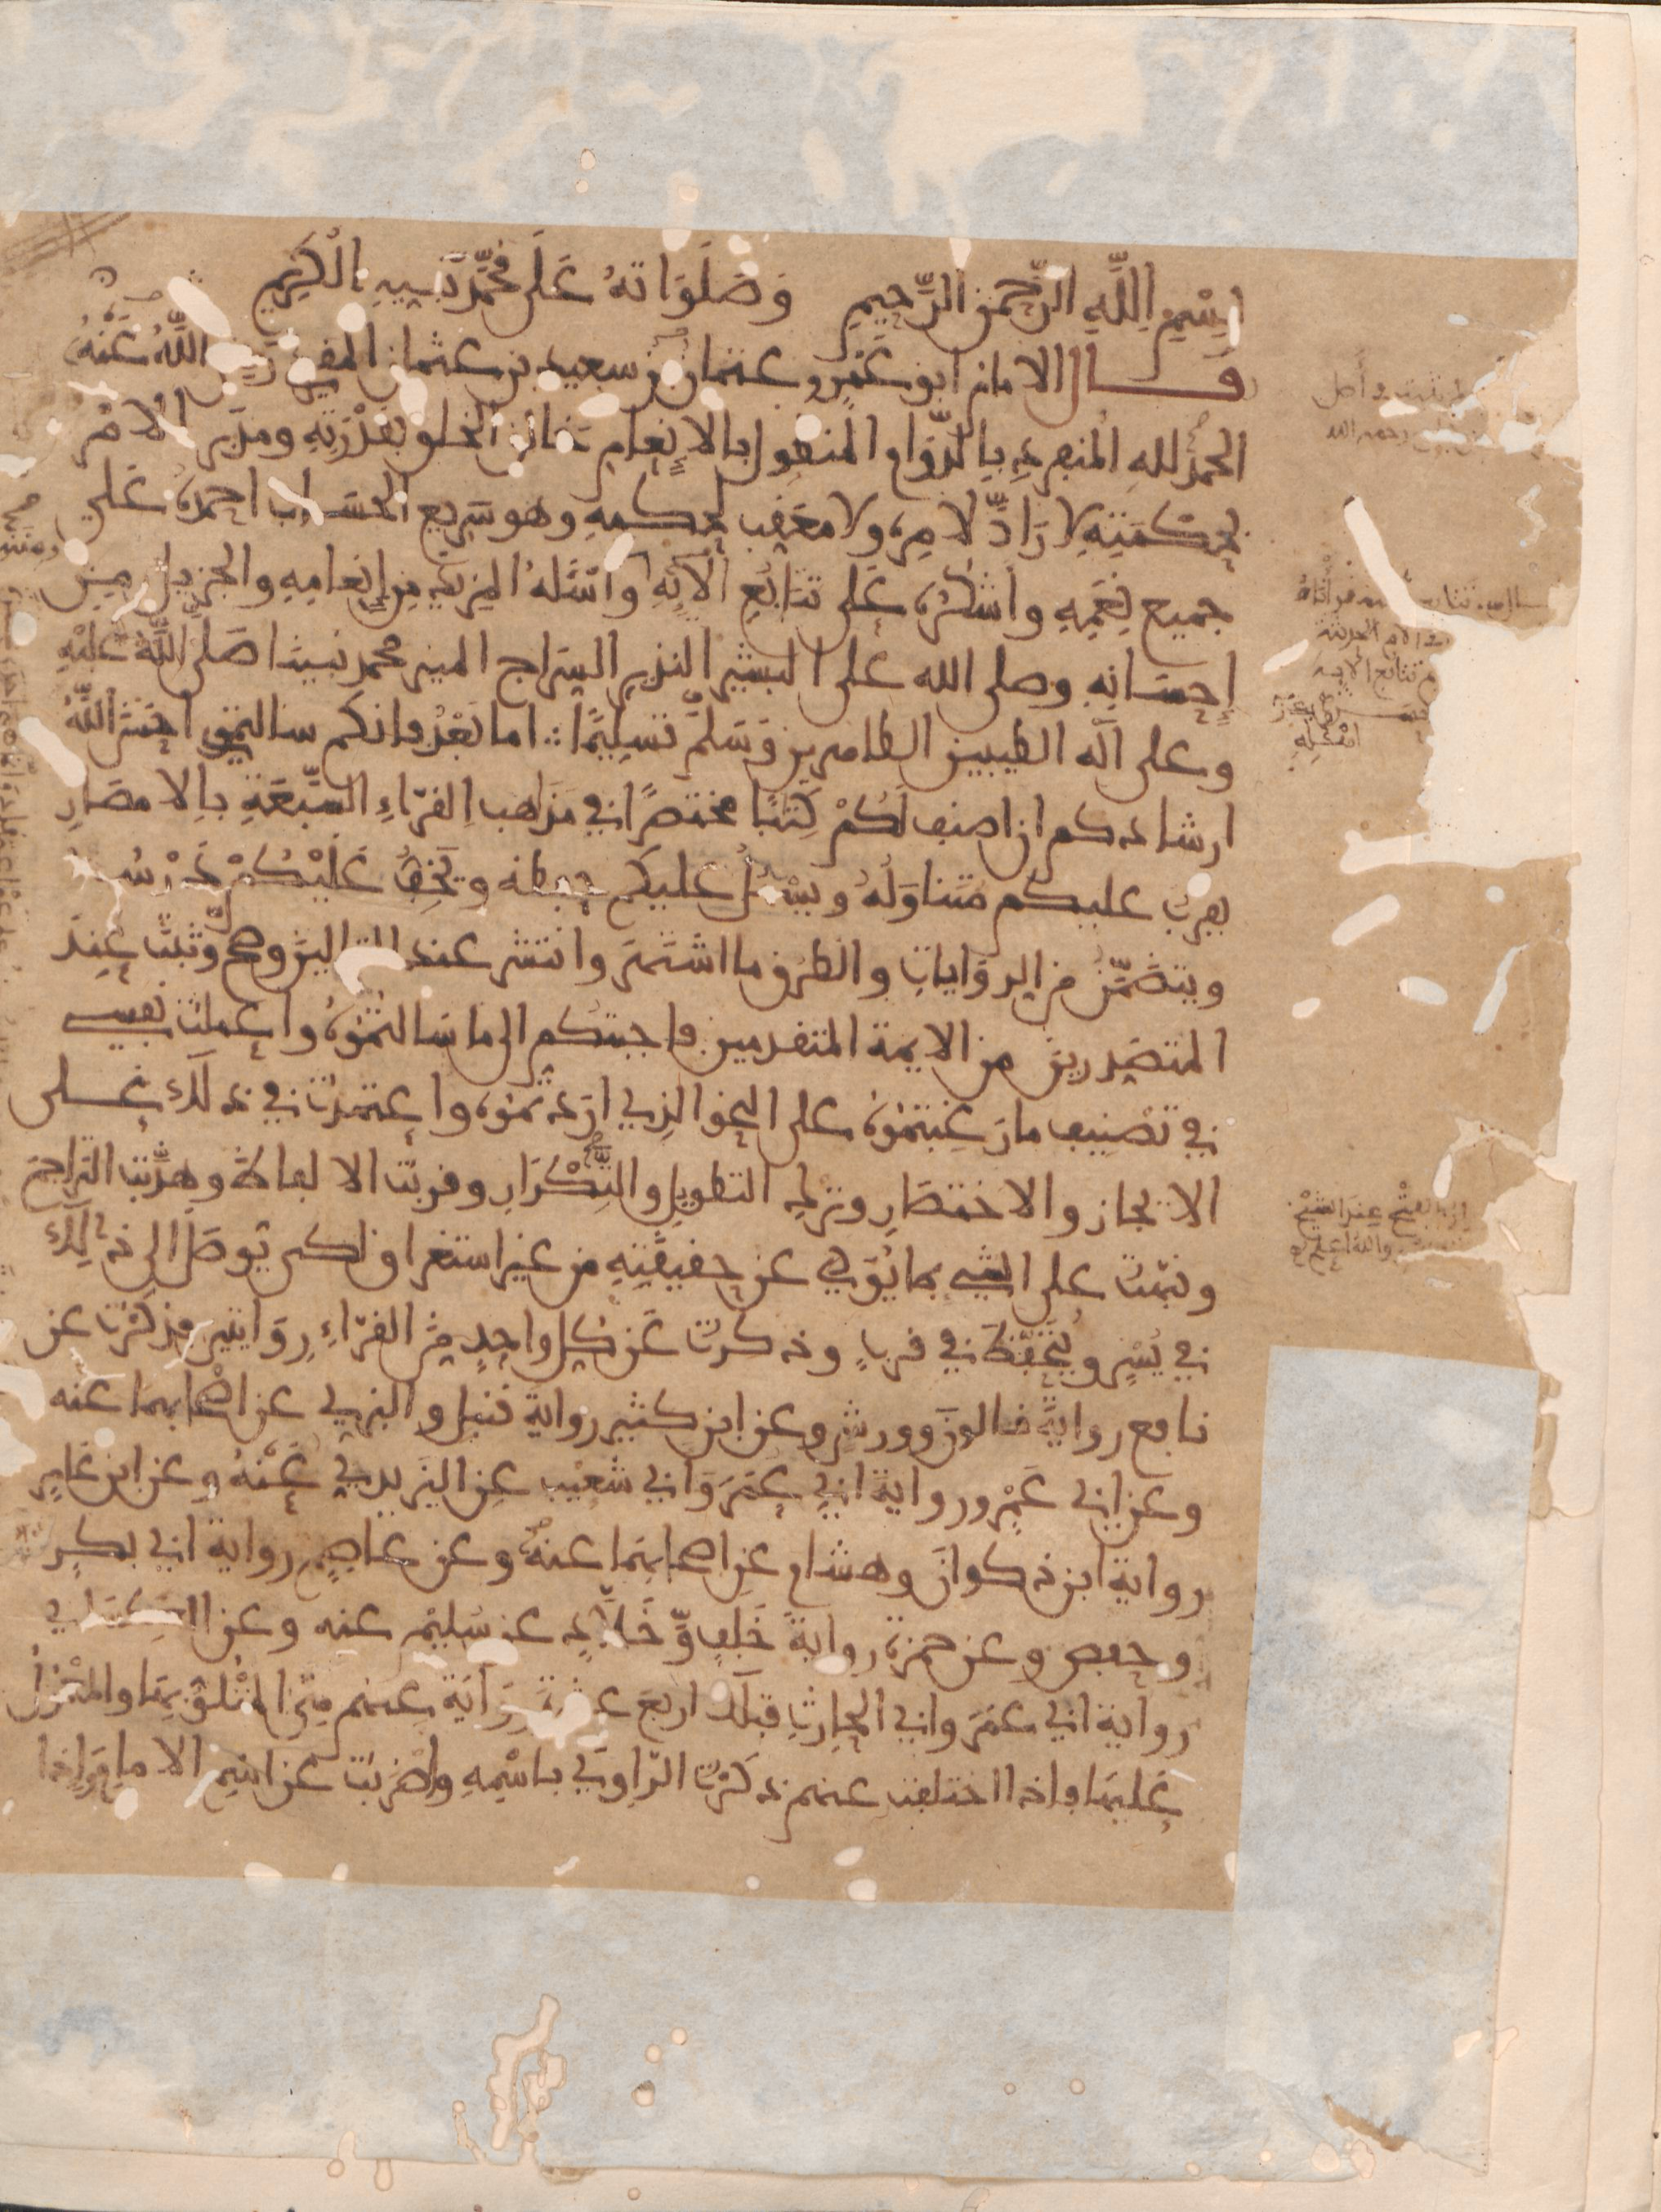 بسم الله الرحمن الرحيم وصلواته على محمد نبيه الكريم
قال الامام ابو عمرو عثمان بن سعيد بن عثمان المقرئ رضي الله عنه
الحمد لله المنفرد بالدوام المتطول بالانعام خالق الخلق بقدرته ومدبر الامر
بحكمته لا راد لامره ولا معقب لحكمه وهو سريع الحساب احمده على
جميع نعمه واشكره على تتابع آلائه واسئله المزيد من إنعامه والجزيل من
إحسانه وصلى الله على البشير النذير السراج المنير محمد نبينا صلى الله عليه
وعلى آله الطيبين الطاهرين وسلم تسليما اما بعد فانكم سالتموني احسن الله
ارشادكم ان اصنف لكم كتبا مختصرا في مذاهب القراء السبعة بالامصار
يقرب عليكم متناوله ويسهل عليكم حفظه ويخف عليكم درسه
ويتضمن من الروايات والطرق ما اشتهر وانتشر عند التالين وصح وثبت عند
المتصدرين من الايمة المتقدمين فاجبتكم الى ما سالتموه واعملت نفسي
في تصنيف ما رغبتموه على النحو الذي اردتموه واعتمدت في ذلك على
الايجاز والاختصار وترك التطويل والتكرار وقربت الالفاظ وهذبت التراجم
ونبهت على الشي بما يؤدي عن حقيقته من غير استغراق لكي يوصل الى ذلك
في يسر ويتحفظ في قرب وذكرت عن كل واحد من القراء روايتين فذكرت عن
نافع رواية قالون وورش وعن ابن كثير رواية قنبل والبزي عن اصحابهما عنه
وعن ابي عمرو رواية ابي عمر وابي شعيب عن اليزيدي عنه وعن ابن عامر
رواية ابن ذكوان وهشام عن اصحابهما عنه وعن عاصم رواية ابي بكر
وحفص وعن حمزة رواية خلف وخلاد عن سليم عنه وعن الكسائي
رواية ابي عمر وابي الحارث فتلك اربع عشرة رواية عنهم هي المتلو بها والمعول
عليها فاذا اختلفت عنهم ذكرت الراوي باسمه واضربت عن اسم الامام واذا